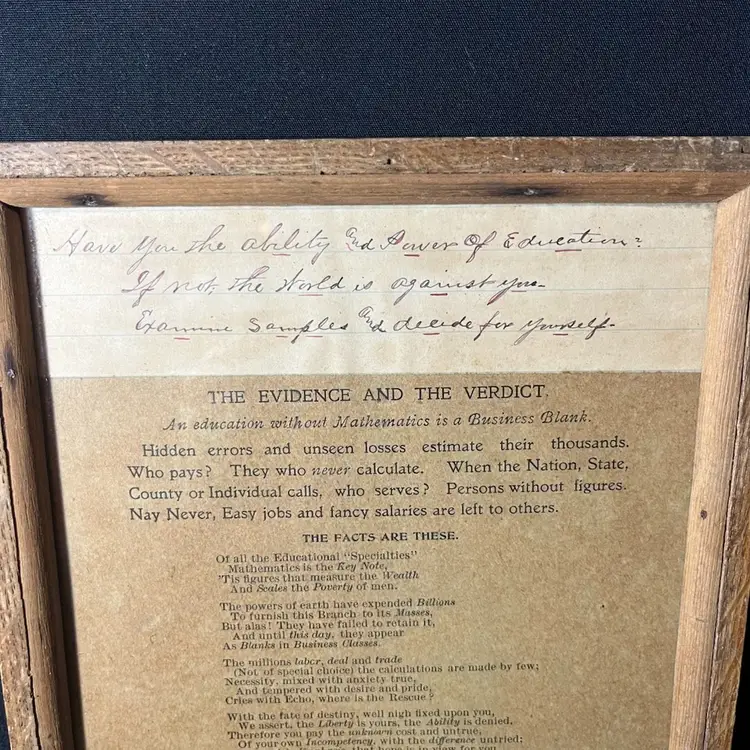 Have You the ability and Power Of Education?
If not, the World is against you-
Examine Samples and decide for yourself-
THE EVIDENCE AND THE VERDICT.
An education without Mathematics is a Business Blank.
Hidden errors and unseen losses estimate their thousands.
Who pays? They who never calculate. When the Nation, State,
County or Individual calls, who serves? Persons without figures.
Nay Never, Easy jobs and fancy salaries are left to others.
THE FACTS ARE THESE.
Of all the Educational "Specialties"
Mathematics is the Key Note,
'Tis figures that measure the Wealth
And Scales the Poverty of men.
The powers of earth have expended Billions
To furnish this Branch to its Masses,
But alas! They have failed to retain it,
And until this day, they appear
As Blanks in Business Classes.
The millions labor, deal and trade
(Not of special choice) the calculations are made by few;
Necessity, mixed with anxiety true,
And tempered with desire and pride,
Cries with Echo, where is the Rescue?
With the fate of destiny, well nigh fixed upon you,
We assert, the Liberty is yours, the Ability is denied,
Therefore you pay the unknown cost and untrue,
Of your own Incompetency, with the difference untried;